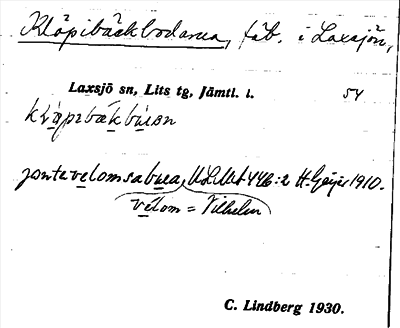 Kløpibäckbodarna, fäb. i Laxsjön,
Laxsjö sn, Lits tg, Jämtl. l.
54
jontavelomsabuɐa, ULMA 446:2 H. Geijer 1910.
velom = Vilhelm
C. Lindberg 1930.